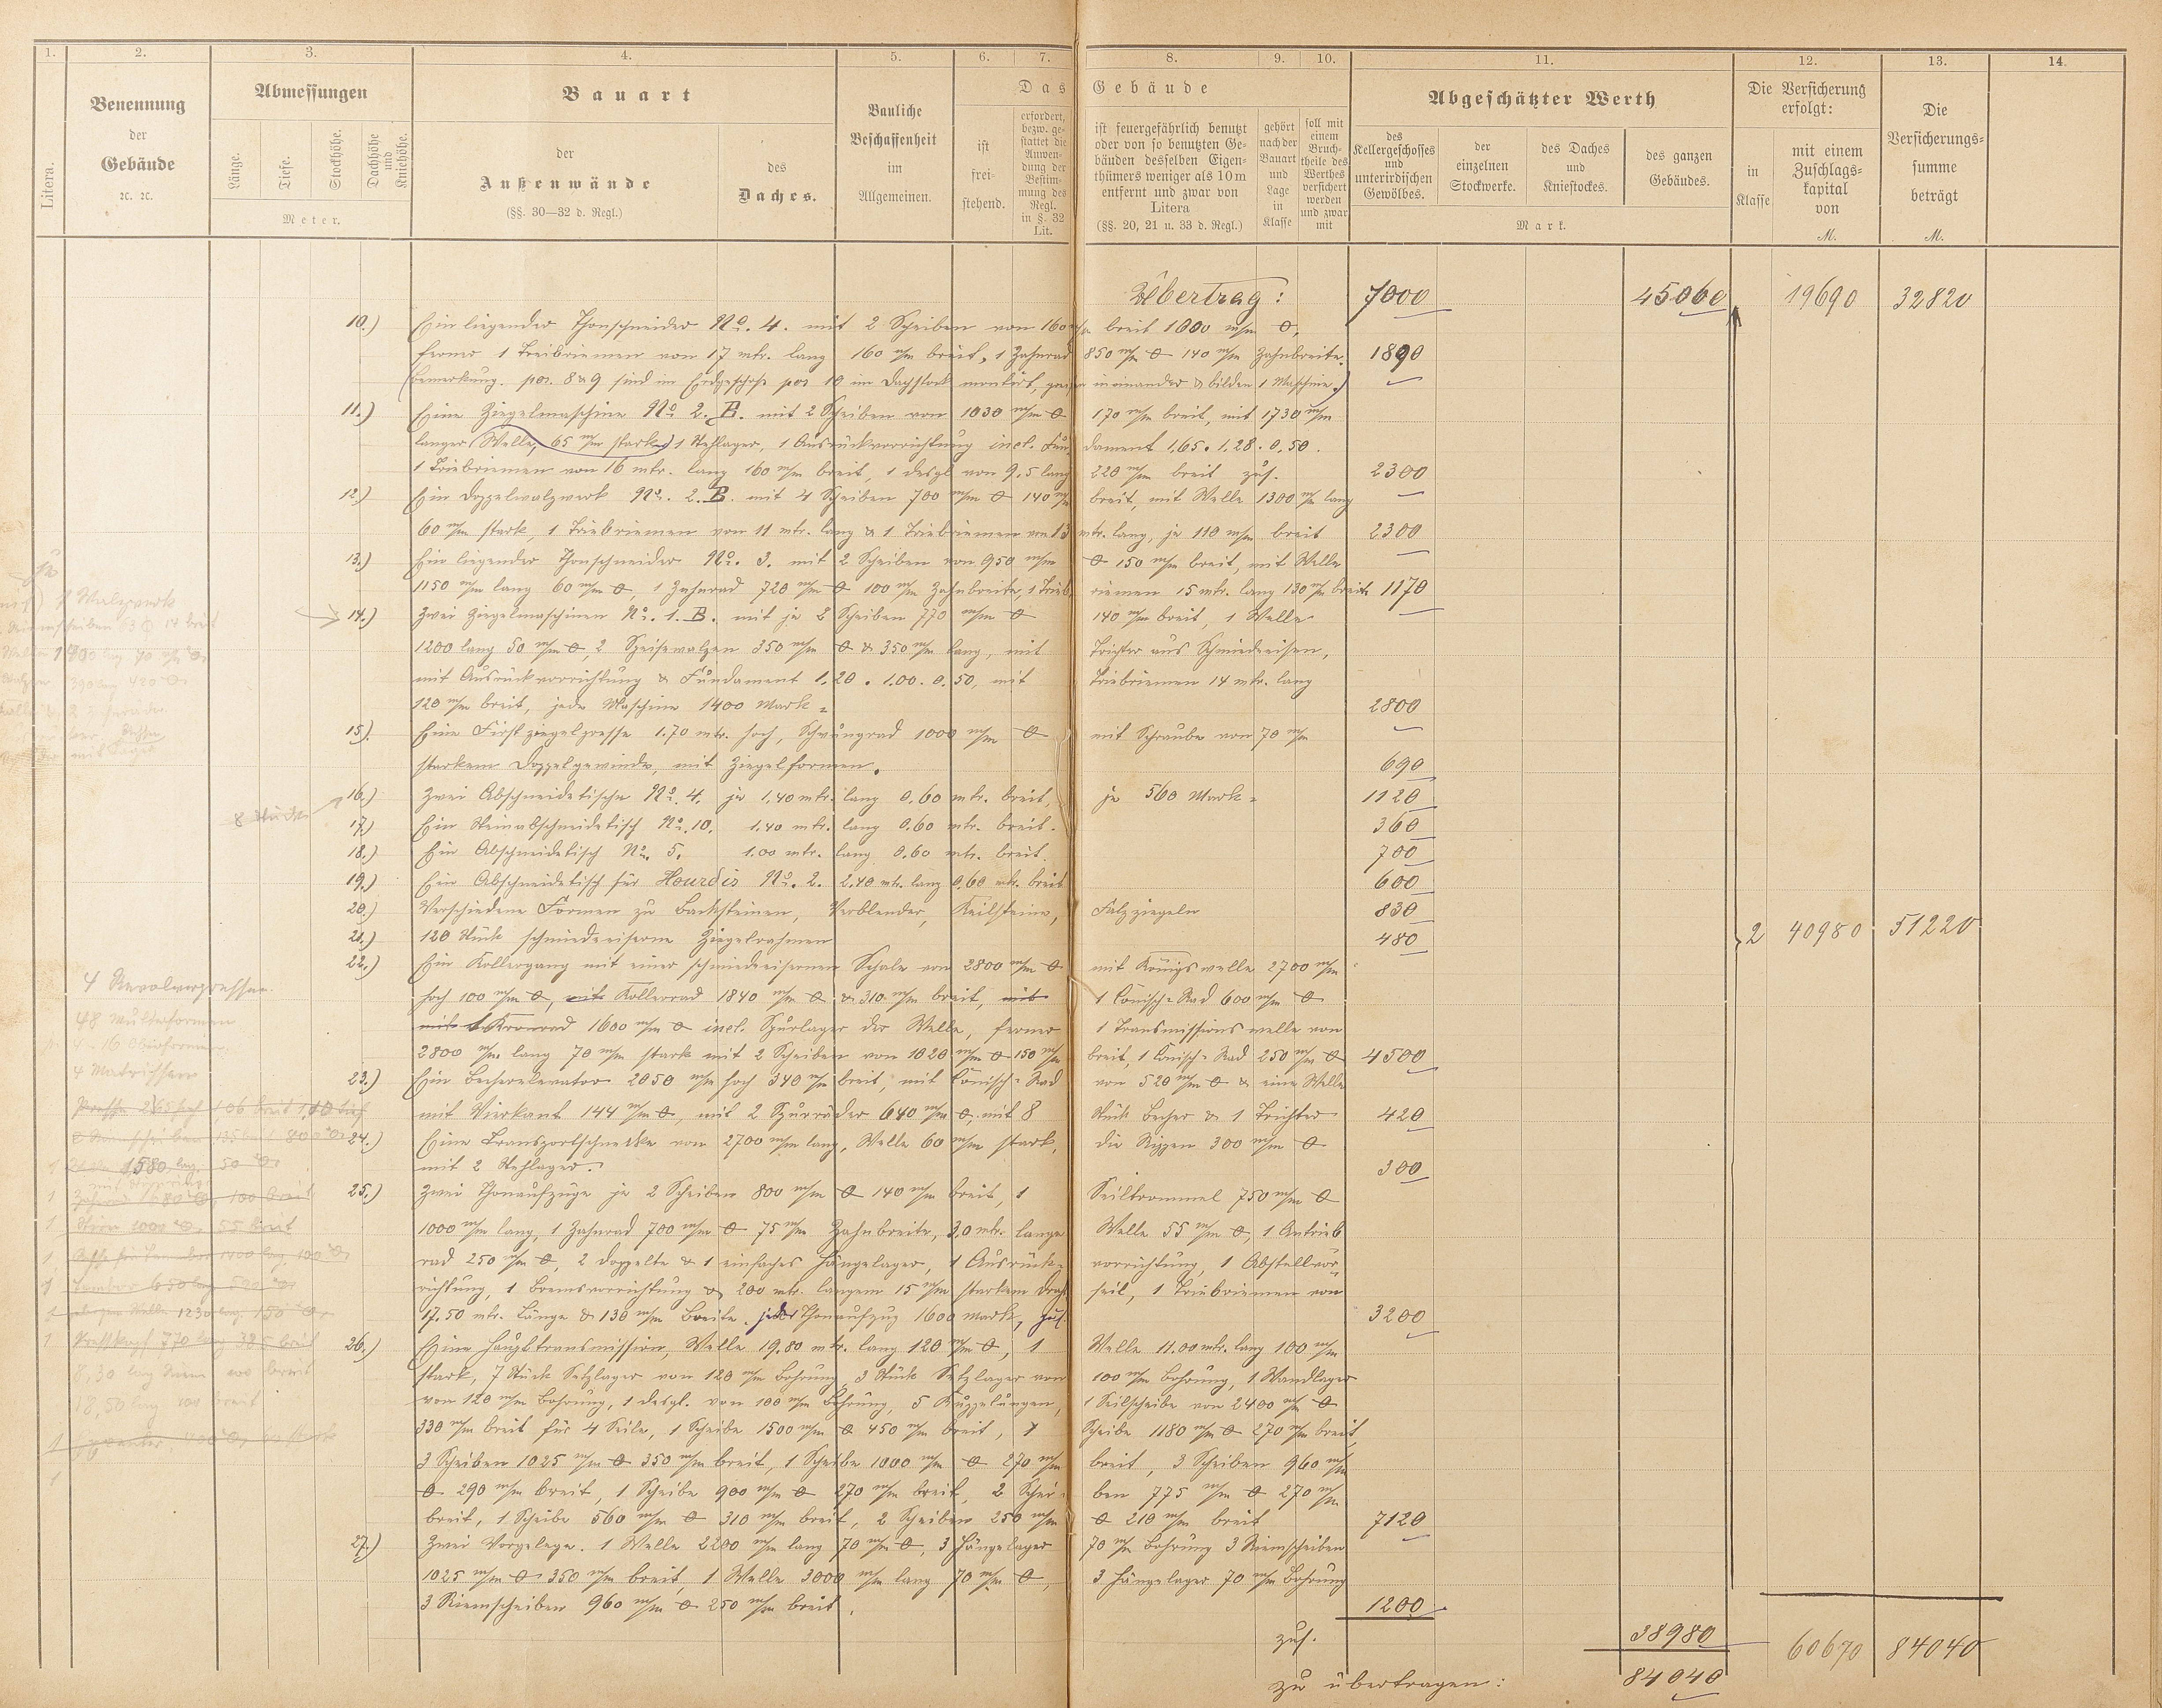 1. 2. 3. 4. 5. 6. 7. 8. 9. 10. 11. 12. 13. 14.
Litera.
Benennung
der
Gebäude
ꝛc. ꝛc.
Abmessungen
Länge.
Tiefe.
Stockhöhe.
Dachhöhe
und
Kniehöhe.
Meter.
Bauart
der
Außenwände
(§§. 30—32 d. Regl.)
des
Daches.
Bauliche
Beschaffenheit
im
Allgemeinen.
Das Gebäude
ist
frei-
stehend.
erfordert,
bezw. ge-
stattet die
Anwen-
dung der
Bestim-
mung des
Regl.
in §. 32
Lit.
ist feuergefährlich benutzt
oder von so benutzten Ge-
bäuden desselben Eigen-
thümers weniger als 10 m
entfernt und zwar von
Litera
(§§. 20, 21 u. 33 d. Regl.)
gehört
nach der
Bauart
und
Lage
in
Klasse
soll mit
einem
Bruch-
theile des
Werthes
versichert
werden
und zwar
mit
Abgeschätzter Werth
des
Kellergeschosses
und
unterirdischen
Gewölbes.
der
einzelnen
Stockwerke.
des Daches
und
Kniestockes.
des ganzen
Gebäudes.
Mark.
Die Versicherung
erfolgt:
in
Klasse
mit einem
Zuschlags-
kapital
von
M.
Die
Versicherungs-
summe
beträgt
M.
Übertrag: 7000 45060 19690 32820
10.) Ein liegender Thonschneider No. 4. mit 2 Scheiben von 160 m/m breit 1000 m/m ꝋ,
ferner 1 Treibriemen von 17 mtr. lang 160 m/m breit, 1 Zahnrad 850 m/m ꝋ 140 m/m Zahnbreite. 1890
(Bemerkung. pos. 8 & 9 sind im Erdgeschoß pos 10 im Dachstock montirt, ineinander & bilden 1 Maschine.)
11.) Eine Ziegelmaschine No 2. B. mit 2 Scheiben von 1030 m/m ꝋ 170 m/m breit, mit 1730 m/m
langer (Welle, 65 m/m stark,) 1 Stehlager, 1 Ausrückvorrichtung incl. Fundament 1,65 . 1,28 . 0,50.
1 Triebriemen von 16 mtr. lang 160 m/m breit, 1 desgl. von 9,5 lang 220 m/m breit zus. 2300
12.) Ein Doppelwalzwerk No. 2. B. mit 4 Scheiben 700 m/m ꝋ 140 m/m breit, mit Welle 1300 m/m lang
60 m/m stark, 1 Triebriemen von 11 mtr. lang & 1 Triebriemen von 13 mtr. lang, je 110 m/m breit 2300
13.) Ein liegender Thonschneider No. 3. mit 2 Scheiben von 950 m/m ꝋ 150 m/m breit, mit Welle
1150 m/m lang 60 m/m ꝋ, 1 Zahnrad 720 m/m ꝋ 100 m/m Zahnbreite, 1 Triebriemen 15 mtr. lang 130 m/m breit 1170
14.) Zwei Ziegelmaschinen No. 1. B. mit je 2 Scheiben 770 m/m ꝋ 140 m/m breit, 1 Welle
1200 lang 50 m/m ꝋ, 2 Speisewalzen 350 m/m ꝋ & 350 m/m lang, mit Trichter aus Schmiedeisen,
mit Ausrückvorrichtung & Fundament 1.20 . 1.00 . 0.50, mit Triebriemen 14 mtr. lang
120 m/m breit, jede Maschine 1400 Mark = 2800
15.) Eine Firstziegelpresse 1.70 mtr. hoch, Schwungrad 1000 m/m ꝋ mit Schraube von 70 m/m
starkem Doppelgewinde, mit Ziegelformen. 690
16.) Zwei Abschneidetische No. 4. je 1.40 mtr. lang 0.60 mtr. breit, je 560 Mark = 1120
17.) Ein Steinabschneidetisch No. 10. 1.40 mtr. lang 0.60 mtr. breit. 360
18.) Ein Abschneidetisch No. 5. 1.00 mtr. lang 0.60 mtr. breit. 700
19.) Ein Abschneidetisch für Hourdis No. 2. 2.40 mtr. lang 0.60 mtr. breit 600
20.) Verschiedene Formen zu Backsteinen, Verblender, Keilsteine, Falzziegeln 830
21.) 120 Stück schmiedeiserne Ziegelrahmen 480
2 40980 51220
22.) Ein Kollergang mit einer schmiedeisernen Schale von 2800 m/m ꝋ mit Königswelle 2700 m/m
hoch 100 m/m ꝋ, Kollerrad 1840 m/m ꝋ & 310 m/m breit, mit 1 Cönisch-Rad 600 m/m ꝋ
mit 1 Kronrad 1600 m/m ꝋ incl. Spurlager der Welle, ferner 1 Transmissionswelle von
2800 m/m lang 70 m/m stark mit 2 Scheiben von 1020 m/m ꝋ 150 m/m breit, 1 Cönisch-Rad 250 m/m ꝋ 4500
23.) Ein Becherelevator 2050 m/m hoch 340 m/m breit, mit Cönisch-Rad von 520 m/m ꝋ & eine Welle
mit Vierkant 144 m/m ꝋ, mit 2 Spurräder 640 m/m ꝋ, mit 8 Stück Becher & 1 Trichter 420
24.) Eine Transportschnecke von 2700 m/m lang, Welle 60 m/m stark, die Rippen 300 m/m ꝋ
mit 2 Stehlager. 300
25.) Zwei Thonaufzüge je 2 Scheiben 800 m/m ꝋ 140 m/m breit, 1 Seiltrommel 750 m/m ꝋ
1000 m/m lang, 1 Zahnrad 700 m/m ꝋ 75 m/m Zahnbreite, 3,0 mtr. lange Welle 55 m/m ꝋ, 1 Antrieb
rad 250 m/m ꝋ, 2 doppelte & 1 einfaches Hängelager, 1 Ausrückvorrichtung, 1 Abstellvor-
richtung, 1 Bremsvorrichtung & 200 mtr. langem 15 m/m starkem Drahtseil, 1 Triebriemen von
17.50 mtr. Länge & 130 m/m Breite. jeder Thonaufzug 1600 Mark, zus. 3200
26.) Eine Haupttransmission, Welle 19.80 mtr. lang 120 m/m ꝋ, 1 Welle 11.00 mtr. lang 100 m/m
stark, 7 Stück Sehlager von 120 m/m Bohrung 3 Stück Sehlager von 100 m/m Bohrung, 1 Wandlager
von 120 m/m Bohrung, 1 desgl. von 100 m/m Bohrung, 5 Kuppelungen, 1 Seilscheibe von 2400 m/m ꝋ
330 m/m breit für 4 Seile, 1 Scheibe 1500 m/m ꝋ 450 m/m breit, 1 Scheibe 1180 m/m ꝋ 270 m/m breit,
3 Scheiben 1025 m/m ꝋ 350 m/m breit, 1 Scheibe 1000 m/m ꝋ 270 m/m breit, 3 Scheiben 960 m/m
ꝋ 290 m/m breit, 1 Scheibe 900 m/m ꝋ 270 m/m breit, 2 Scheiben 775 m/m ꝋ 270 m/m
breit, 1 Scheibe 560 m/m ꝋ 310 m/m breit, 2 Scheiben 250 m/m ꝋ 210 m/m breit 7120
27.) Zwei Vorgelege. 1 Welle 2200 m/m lang 70 m/m ꝋ, 3 Hängelager 70 m/m Bohrung 3 Riemscheiben
1025 m/m ꝋ 350 m/m breit, 1 Welle 3000 m/m lang 70 m/m ꝋ, 3 Hängelager 70 m/m Bohrung
3 Riemscheiben 960 m/m ꝋ 250 m/m breit. 1200
zus. 38980 60670 84040
zu übertragen: 84040
1 Walzwerk
8 Stück
4 Revolverpressen
48 Mutterformen
4 Matrissen